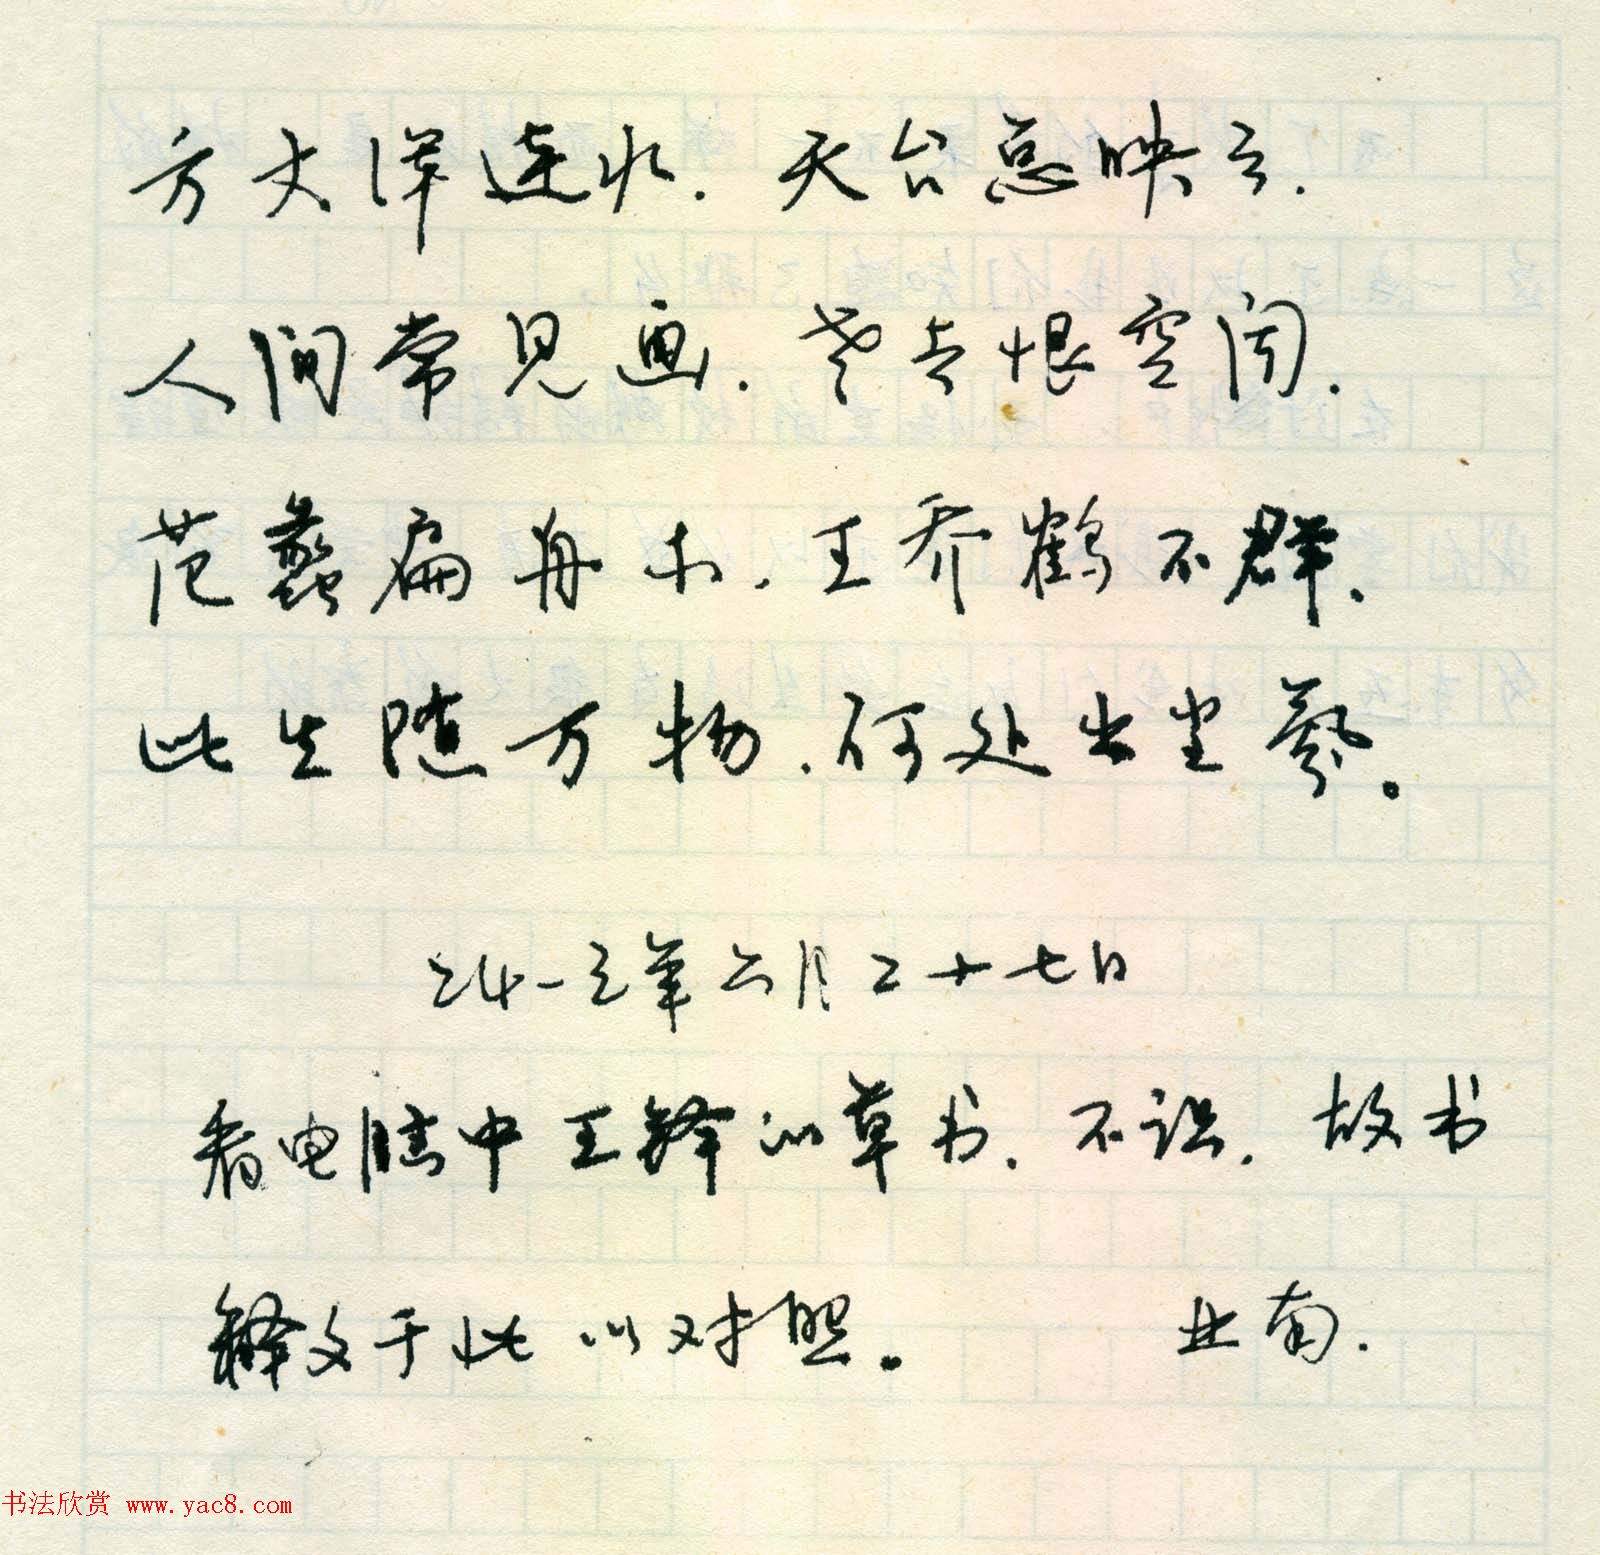 方丈浑连水.天台总映云.
人间常见画.老去恨空闻.
范蠡扁舟小.王乔鹤不群.
此生随万物.何处出尘氛。
二〇一三年六月二十七日
看电脑中王铎的草书.不识.故书
释文于此以对照。 业南.
书法欣赏 www.yac8.com